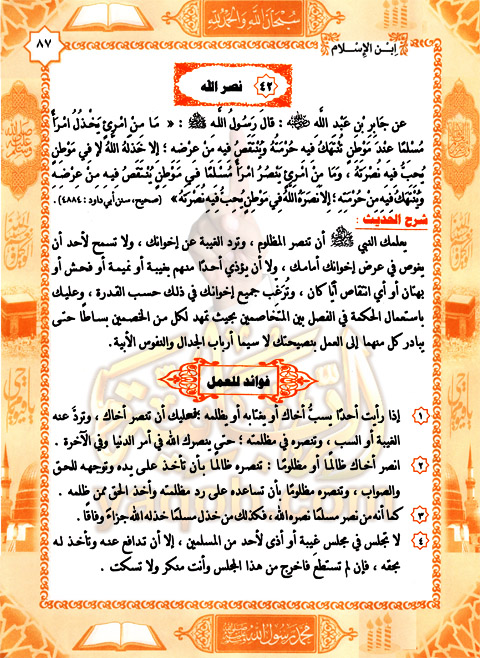 سبحان الله والحمد لله
ابن الإسلام
٨٧
٤٢ نصر الله
عن جَابِرِ بْنِ عَبْدِ اللَّهِ ﵁ : قَالَ رَسُولُ اللَّهِ ﷺ : « مَا مِنْ امْرِئٍ يَخْذُلُ امْرَأً
مُسْلِمًا عِنْدَ مَوْطِنٍ تُنْتَهَكُ فِيهِ حُرْمَتُهُ وَيُنْتَقَصُ فِيهِ مِنْ عِرْضِهِ ؛ إِلا خَذَلَهُ اللَّهُ فِي مَوْطِنٍ
يُحِبُّ فِيهِ نُصْرَتَهُ ، وَمَا مِنْ امْرِئٍ يَنْصُرُ امْرَأً مُسْلِمًا فِي مَوْطِنٍ يُنْتَقَصُ فِيهِ مِنْ عِرْضِهِ
وَيُنْتَهَكُ فِيهِ مِنْ حُرْمَتِهِ ؛ إِلا نَصَرَهُ اللَّهُ فِي مَوْطِنٍ يُحِبُّ فِيهِ نُصْرَتَهُ » (صحيح، سنن أبي داود : ٤٨٨٤) .
شرح الحديث :
يعلمك النبي ﷺ أن تنصر المظلوم ، وترد الغيبة عن إخوانك ، ولا تسمح لأحد أن
يخوض في عرض إخوانك أمامك ، ولا أن يؤذي أحدًا منهم بغيبة أو نميمة أو فحش أو
بهتان أو أي انتقاص أيًا كان ، وترَغِّب جميع إخوانك في ذلك حسب القدرة ، وعليك
باستعمال الحكمة في الفصل بين المتخاصمين بحيث تمهد لكل من الخصمين بساطًا حتى
يبادر كل منهما إلى العمل بنصيحتك لا سيما أرباب الجدال والنفوس الأبية.
فوائد للعمل
١ إذا رأيت أحدًا يسبُّ أخاك أو يغتابه أو يظلمه فعليك أن تنصر أخاك ، وتردَّ عنه
الغيبة أو السب ، وتنصره في مظلمته ؛ حتى ينصرك الله في أمر الدنيا وفي الآخرة .
٢ انصر أخاك ظالمًا أو مظلومًا : تنصره ظالمًا بأن تأخذ على يده وتوجهه للحق
والصواب ، وتنصره مظلومًا بأن تساعده على رد مظلمته وأخذ الحق ممن ظلمه .
٣ كما أنه من نصر مسلمًا نصره الله ، فكذلك من خذل مسلمًا خذله الله جزاءً وفاقًا .
٤ لا تجلس في مجلس غيبة أو أذى لأحد من المسلمين ، إلا أن تدافع عنه وتأخذ له
بحقه ، فإن لم تستطع فاخرج من هذا المجلس وأنت منكر ولا تسكت .
محمد رسول الله